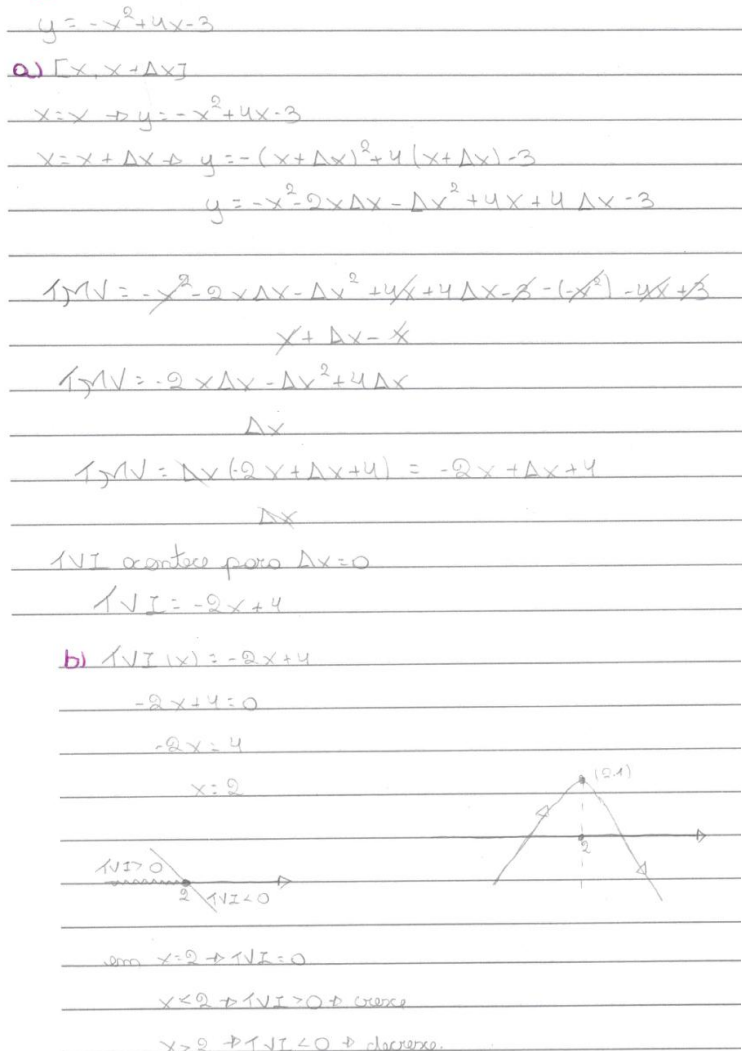 y = -x²+4x-3
a) [x, x+Δx]
x=x → y=-x²+4x-3
x=x+Δx → y=-(x+Δx)²+4(x+Δx)-3
y=-x²-2xΔx-Δx²+4x+4Δx-3
TMV = -x²-2xΔx-Δx²+4x+4Δx-3-(-x²)-4x+3
x+Δx-x
TMV = -2xΔx-Δx²+4Δx
Δx
TMV = Δx(-2x+Δx+4) = -2x+Δx+4
Δx
TVI acontece para Δx=0
TVI = -2x+4
b) TVI(x) = -2x+4
-2x+4=0
-2x=4
x=2
(2,1)
2
TVI>0
2 TVI<0
em x=2 → TVI=0
x<2 → TVI>0 → cresce
x>2 → TVI<0 → decresce.